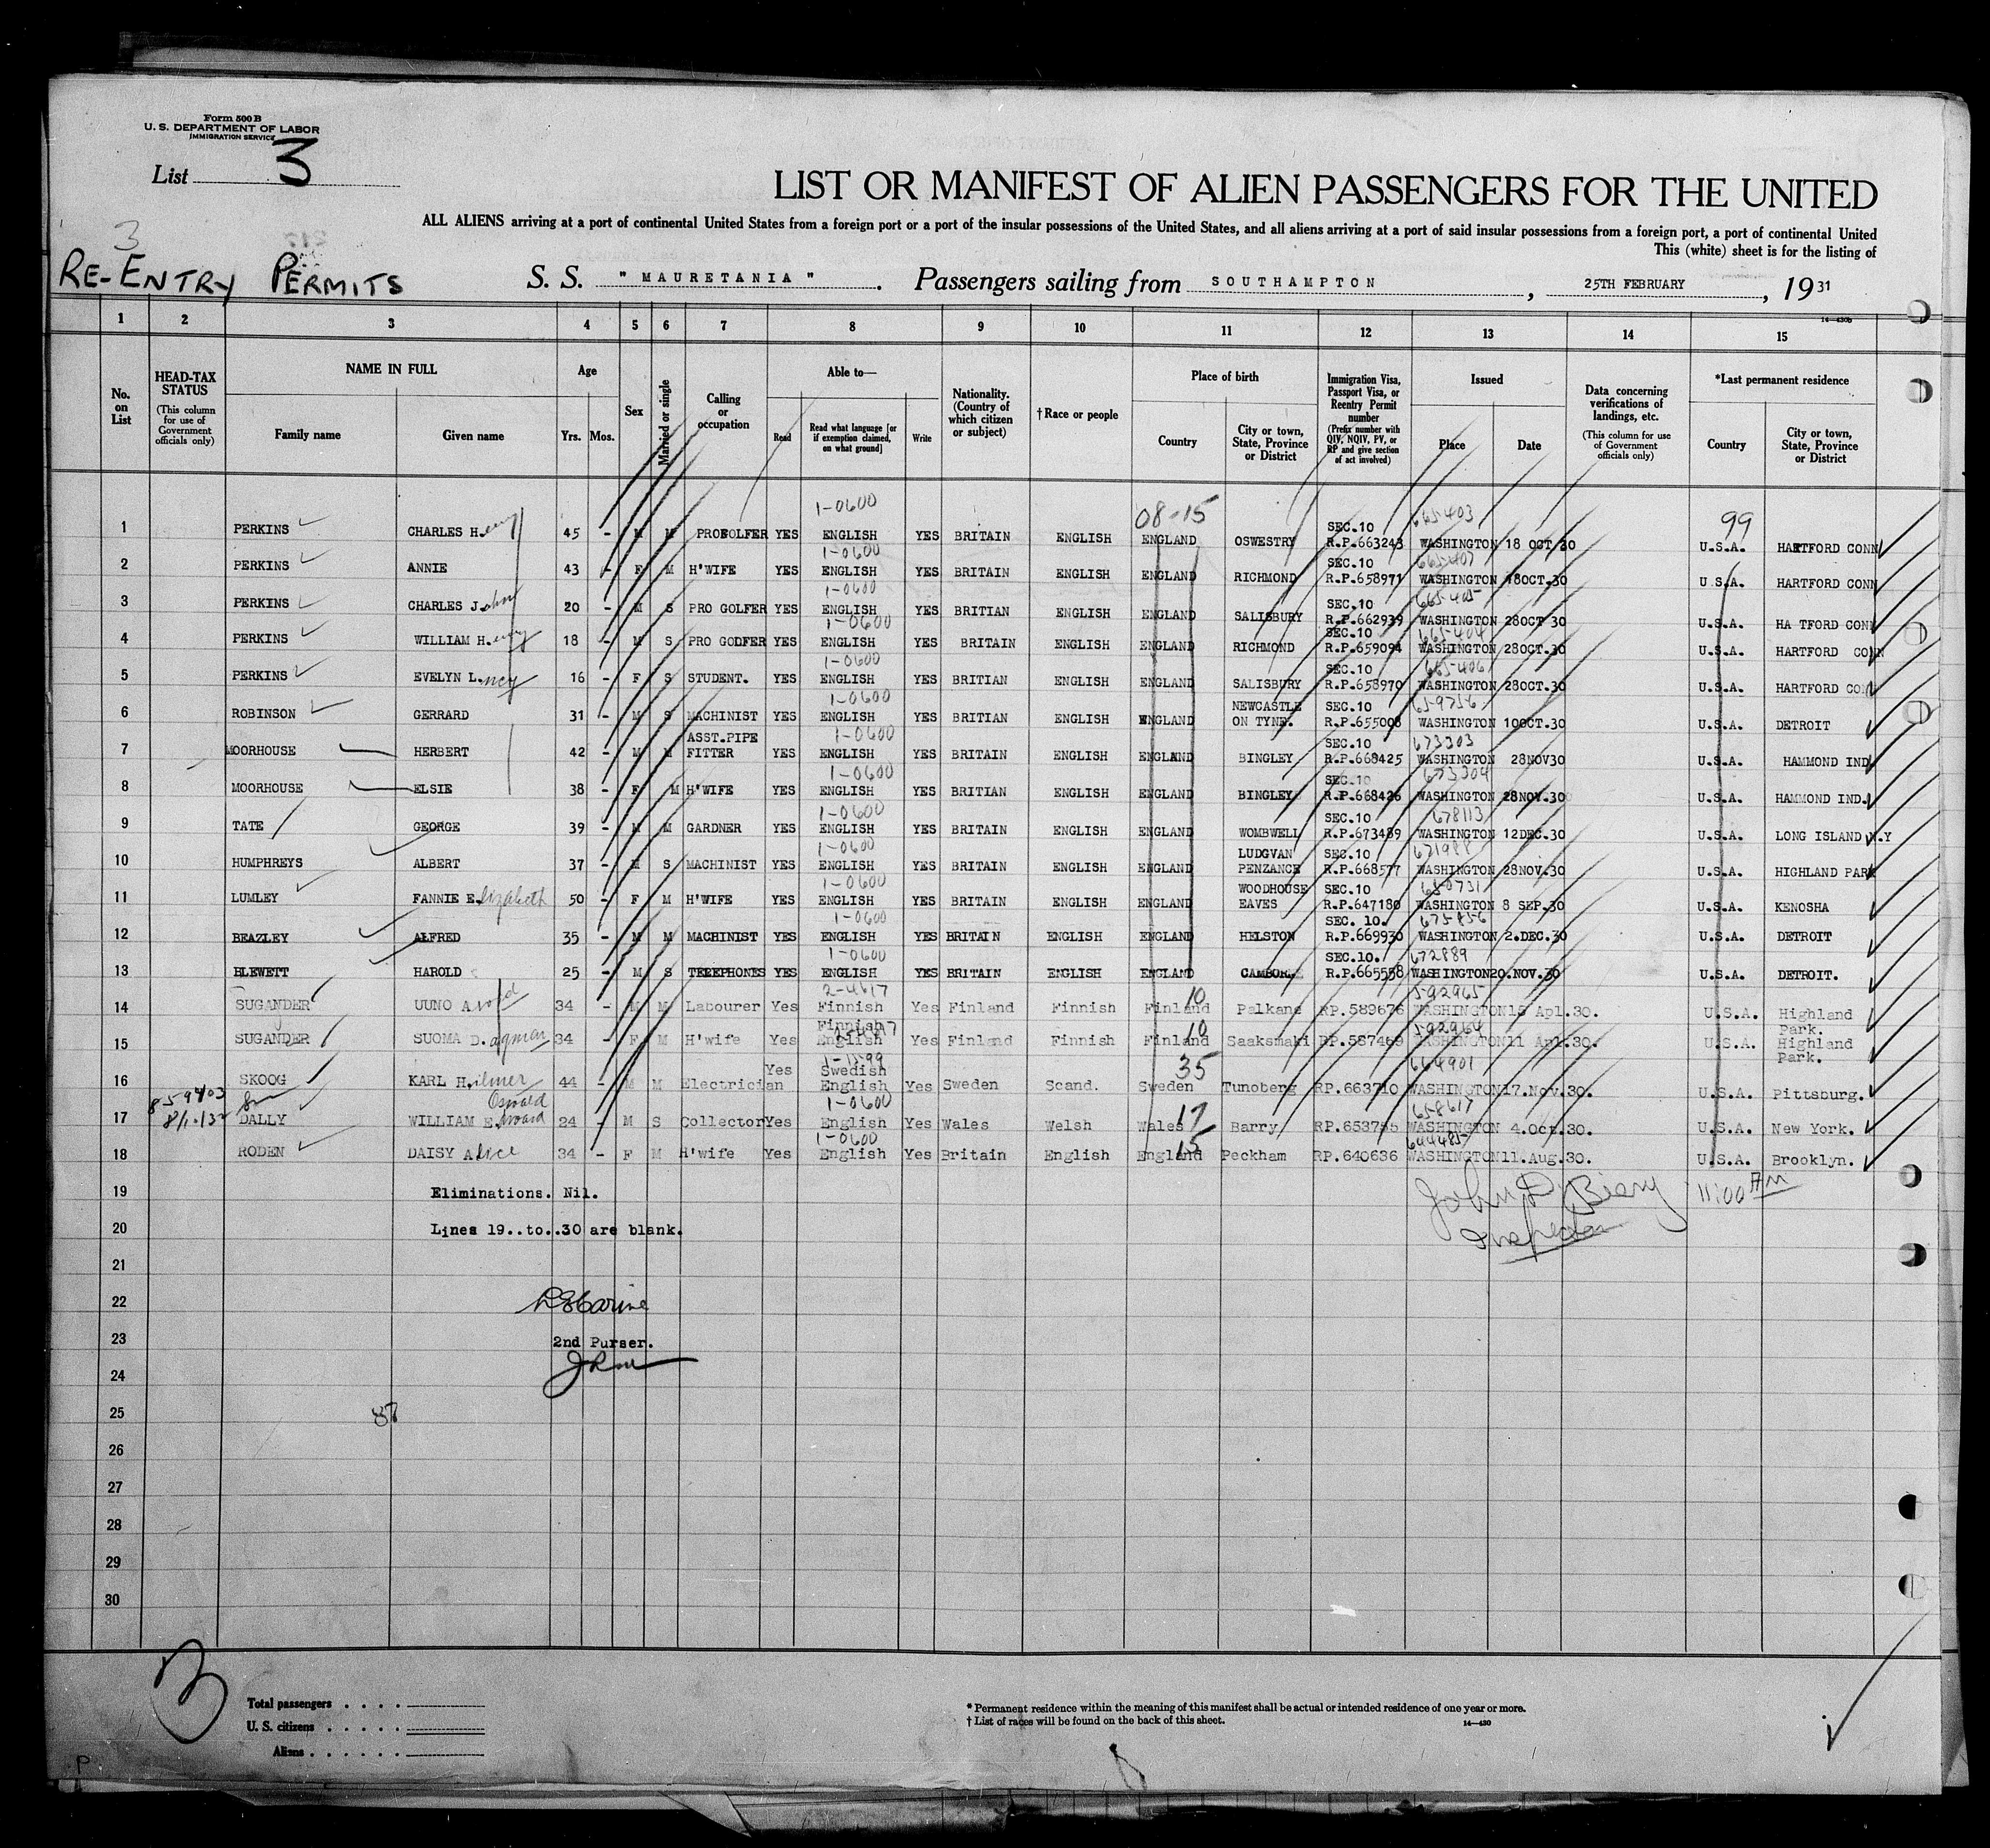 Form 500 B
U. S. DEPARTMENT OF LABOR
IMMIGRATION SERVICE
List 3
LIST OR MANIFEST OF ALIEN PASSENGERS FOR THE UNITED
ALL ALIENS arriving at a port of continental United States from a foreign port or a port of the insular possessions of the United States, and all aliens arriving at a port of said insular possessions from a foreign port, a port of continental United
This (white) sheet is for the listing of
3
RE-ENTRY PERMITS
S. S. "MAURETANIA". Passengers sailing from SOUTHAMPTON, 25TH FEBRUARY, 1931
14-430b
1 2 3 4 5 6 7 8 9 10 11 12 13 14 15
No. on List
HEAD-TAX STATUS (This column for use of Government officials only)
NAME IN FULL Family name Given name
Age Yrs. Mos.
Sex
Married or single
Calling or occupation
Able to— Read Read what language [or if exemption claimed, on what ground] Write
Nationality. (Country of which citizen or subject)
†Race or people
Place of birth Country City or town, State, Province or District
Immigration Visa, Passport Visa, or Reentry Permit number (Prefix number with QIV, NQIV, PV, or RP and give section of act involved)
Issued Place Date
Data concerning verifications of landings, etc. (This column for use of Government officials only)
*Last permanent residence Country City or town, State, Province or District
1-0600 08-15 665403 99
1 PERKINS CHARLES H.enry 45 - M M PROGOLFER YES ENGLISH YES BRITAIN ENGLISH ENGLAND OSWESTRY SEC.10 R.P.663243 WASHINGTON 18 OCT 30 U.S.A. HARTFORD CONN
1-0600 665407
2 PERKINS ANNIE 43 - F M H'WIFE YES ENGLISH YES BRITAIN ENGLISH ENGLAND RICHMOND SEC.10 R.P.658971 WASHINGTON 18OCT.30 U.S.A. HARTFORD CONN
1-0600 665405
3 PERKINS CHARLES J.ohn 20 - M S PRO GOLFER YES ENGLISH YES BRITIAN ENGLISH ENGLAND SALISBURY SEC.10 R.P.662939 WASHINGTON 28OCT 30 U.S.A. HA TFORD CONN
1-0600 665404
4 PERKINS WILLIAM H.enry 18 - M S PRO GODFER YES ENGLISH YES BRITAIN ENGLISH ENGLAND RICHMOND SEC.10 R.P.659094 WASHINGTON 28OCT.30 U.S.A. HARTFORD CONN
1-0600 665406
5 PERKINS EVELYN L.ucy 16 - F S STUDENT. YES ENGLISH YES BRITIAN ENGLISH ENGLAND SALISBURY SEC.10 R.P.658970 WASHINGTON 28OCT.30 U.S.A. HARTFORD CONN
1-0600 659756
6 ROBINSON GERRARD 31 - M S MACHINIST YES ENGLISH YES BRITIAN ENGLISH ENGLAND NEWCASTLE ON TYNE. SEC.10 R.P.655008 WASHINGTON 10OCT.30 U.S.A. DETROIT
1-0600 673303
7 MOORHOUSE HERBERT 42 - M M ASST.PIPE FITTER YES ENGLISH YES BRITAIN ENGLISH ENGLAND BINGLEY SEC.10 R.P.668425 WASHINGTON 28NOV30 U.S.A. HAMMOND IND
1-0600 673304
8 MOORHOUSE ELSIE 38 - F M H'WIFE YES ENGLISH YES BRITIAN ENGLISH ENGLAND BINGLEY SEC.10 R.P.668426 WASHINGTON 28NOV.30 U.S.A. HAMMOND IND.
1-0600 678113
9 TATE GEORGE 39 - M M GARDNER YES ENGLISH YES BRITAIN ENGLISH ENGLAND WOMBWELL SEC.10 R.P.673489 WASHINGTON 12DEC.30 U.S.A. LONG ISLAND N.Y
1-0600 671988
10 HUMPHREYS ALBERT 37 - M S MACHINIST YES ENGLISH YES BRITAIN ENGLISH ENGLAND LUDGVAN PENZANCE SEC.10 R.P.668577 WASHINGTON 28NOV.30 U.S.A. HIGHLAND PARK
1-0600 650731
11 LUMLEY FANNIE E.lizabeth 50 - F M H'WIFE YES ENGLISH YES BRITAIN ENGLISH ENGLAND WOODHOUSE EAVES SEC.10 R.P.647180 WASHINGTON 8 SEP.30 U.S.A. KENOSHA
1-0600 675856
12 BEAZLEY ALFRED 35 - M M MACHINIST YES ENGLISH YES BRITAIN ENGLISH ENGLAND HELSTON SEC. 10. R.P.669930 WASHINGTON 2.DEC.30 U.S.A. DETROIT
1-0600 672889
13 BLEWETT HAROLD 25 - M S TELEPHONES YES ENGLISH YES BRITAIN ENGLISH ENGLAND CAMBORNE SEC.10. R.P.665558 WASHINGTON20.NOV.30 U.S.A. DETROIT.
2-4617 10 592965
14 SUGANDER UUNO A. 34 - M M Labourer Yes Finnish Yes Finland Finnish Finland Palkane RP.589676 WASHINGTON15 Apl.30. U.S.A. Highland Park.
10 592964
15 SUGANDER SUOMA D.agmar 34 - F M H'wife Yes Finnish English Yes Finland Finnish Finland Saaksmaki RP.587469 WASHINGTON11 Apl.30. U.S.A. Highland Park.
35 664901
16 SKOOG KARL H.ilmer 44 - M M Electrician Yes Swedish English Yes Sweden Scand. Sweden Tunoberg RP.663710 WASHINGTON17.Nov.30. U.S.A. Pittsburg.
Oswald 1-0600 17 658617
17 DALLY WILLIAM E.dward 24 - M S Collector Yes English Yes Wales Welsh Wales Barry RP.653755 WASHINGTON 4.Oct.30. U.S.A. New York.
1-0600 15 644485
18 RODEN DAISY Alice 34 - F M H'wife Yes English Yes Britain English England Peckham RP.640636 WASHINGTON11.Aug.30. U.S.A. Brooklyn.
19 Eliminations. Nil.
John D. Biery 11:00 AM
Inspector
20 Lines 19..to..30 are blank.
21
22
23 2nd Purser.
24
25
26
27
28
29
30
3
Total passengers
U. S. citizens
Aliens
* Permanent residence within the meaning of this manifest shall be actual or intended residence of one year or more.
† List of races will be found on the back of this sheet.
14-430
P